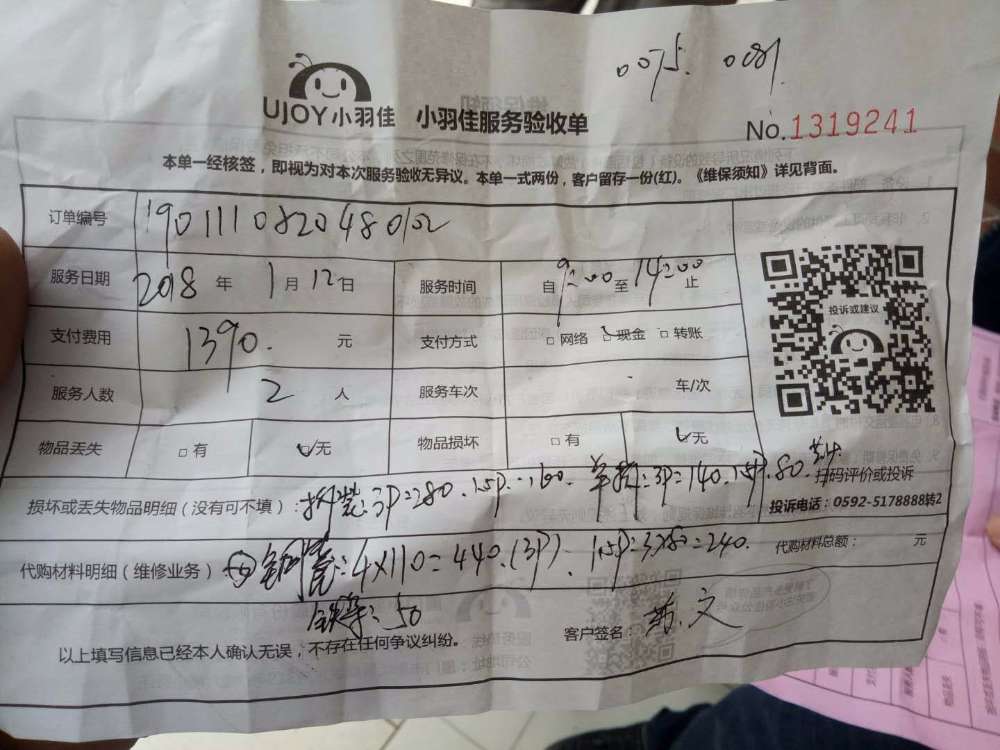 0075. 0081.
UJOY小羽佳 小羽佳服务验收单
No.1319241
本单一经核签，即视为对本次服务验收无异议。本单一式两份，客户留存一份(红)。《维保须知》详见背面。
订单编号 190111082048
服务日期 2018 年 1 月 12 日 服务时间 自 9:00 至 14:00 止
投诉或建议
支付费用 1390. 元 支付方式 □ 网络 ☑ 现金 □ 转账
服务人数 2 人 服务车次 车/次
物品丢失 □ 有 ☑ 无 物品损坏 □ 有 ☑ 无
扫码评价或投诉
损坏或丢失物品明细（没有可不填）：拆装:3P=280.1.5P=160. 单拆:3P=140.1.5P.80.
投诉电话：0592-5178888转2
代购材料明细（维修业务） 铜管:4×110=440.(3P). 1.5P:3×80=240.
代购材料总额： 元
50
以上填写信息已经本人确认无误，不存在任何争议纠纷。
客户签名： 文